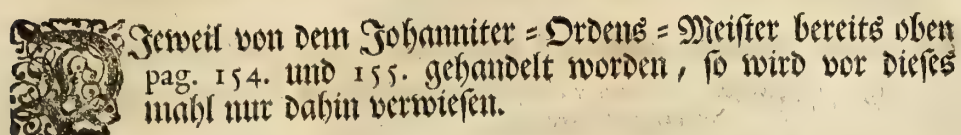 DJeweil von dem Johanniter-Ordens-Meister bereits oben
pag. 154. und 155. gehandelt worden, so wird vor dieses
mahl nur dahin verwiesen.